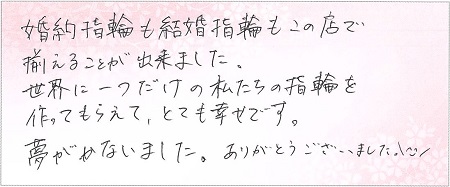 婚約指輪も結婚指輪もこの店で
揃えることが出来ました。
世界に一つだけの私たちの指輪を
作ってもらえて、とても幸せです。
夢がかないました。ありがとうございました^^